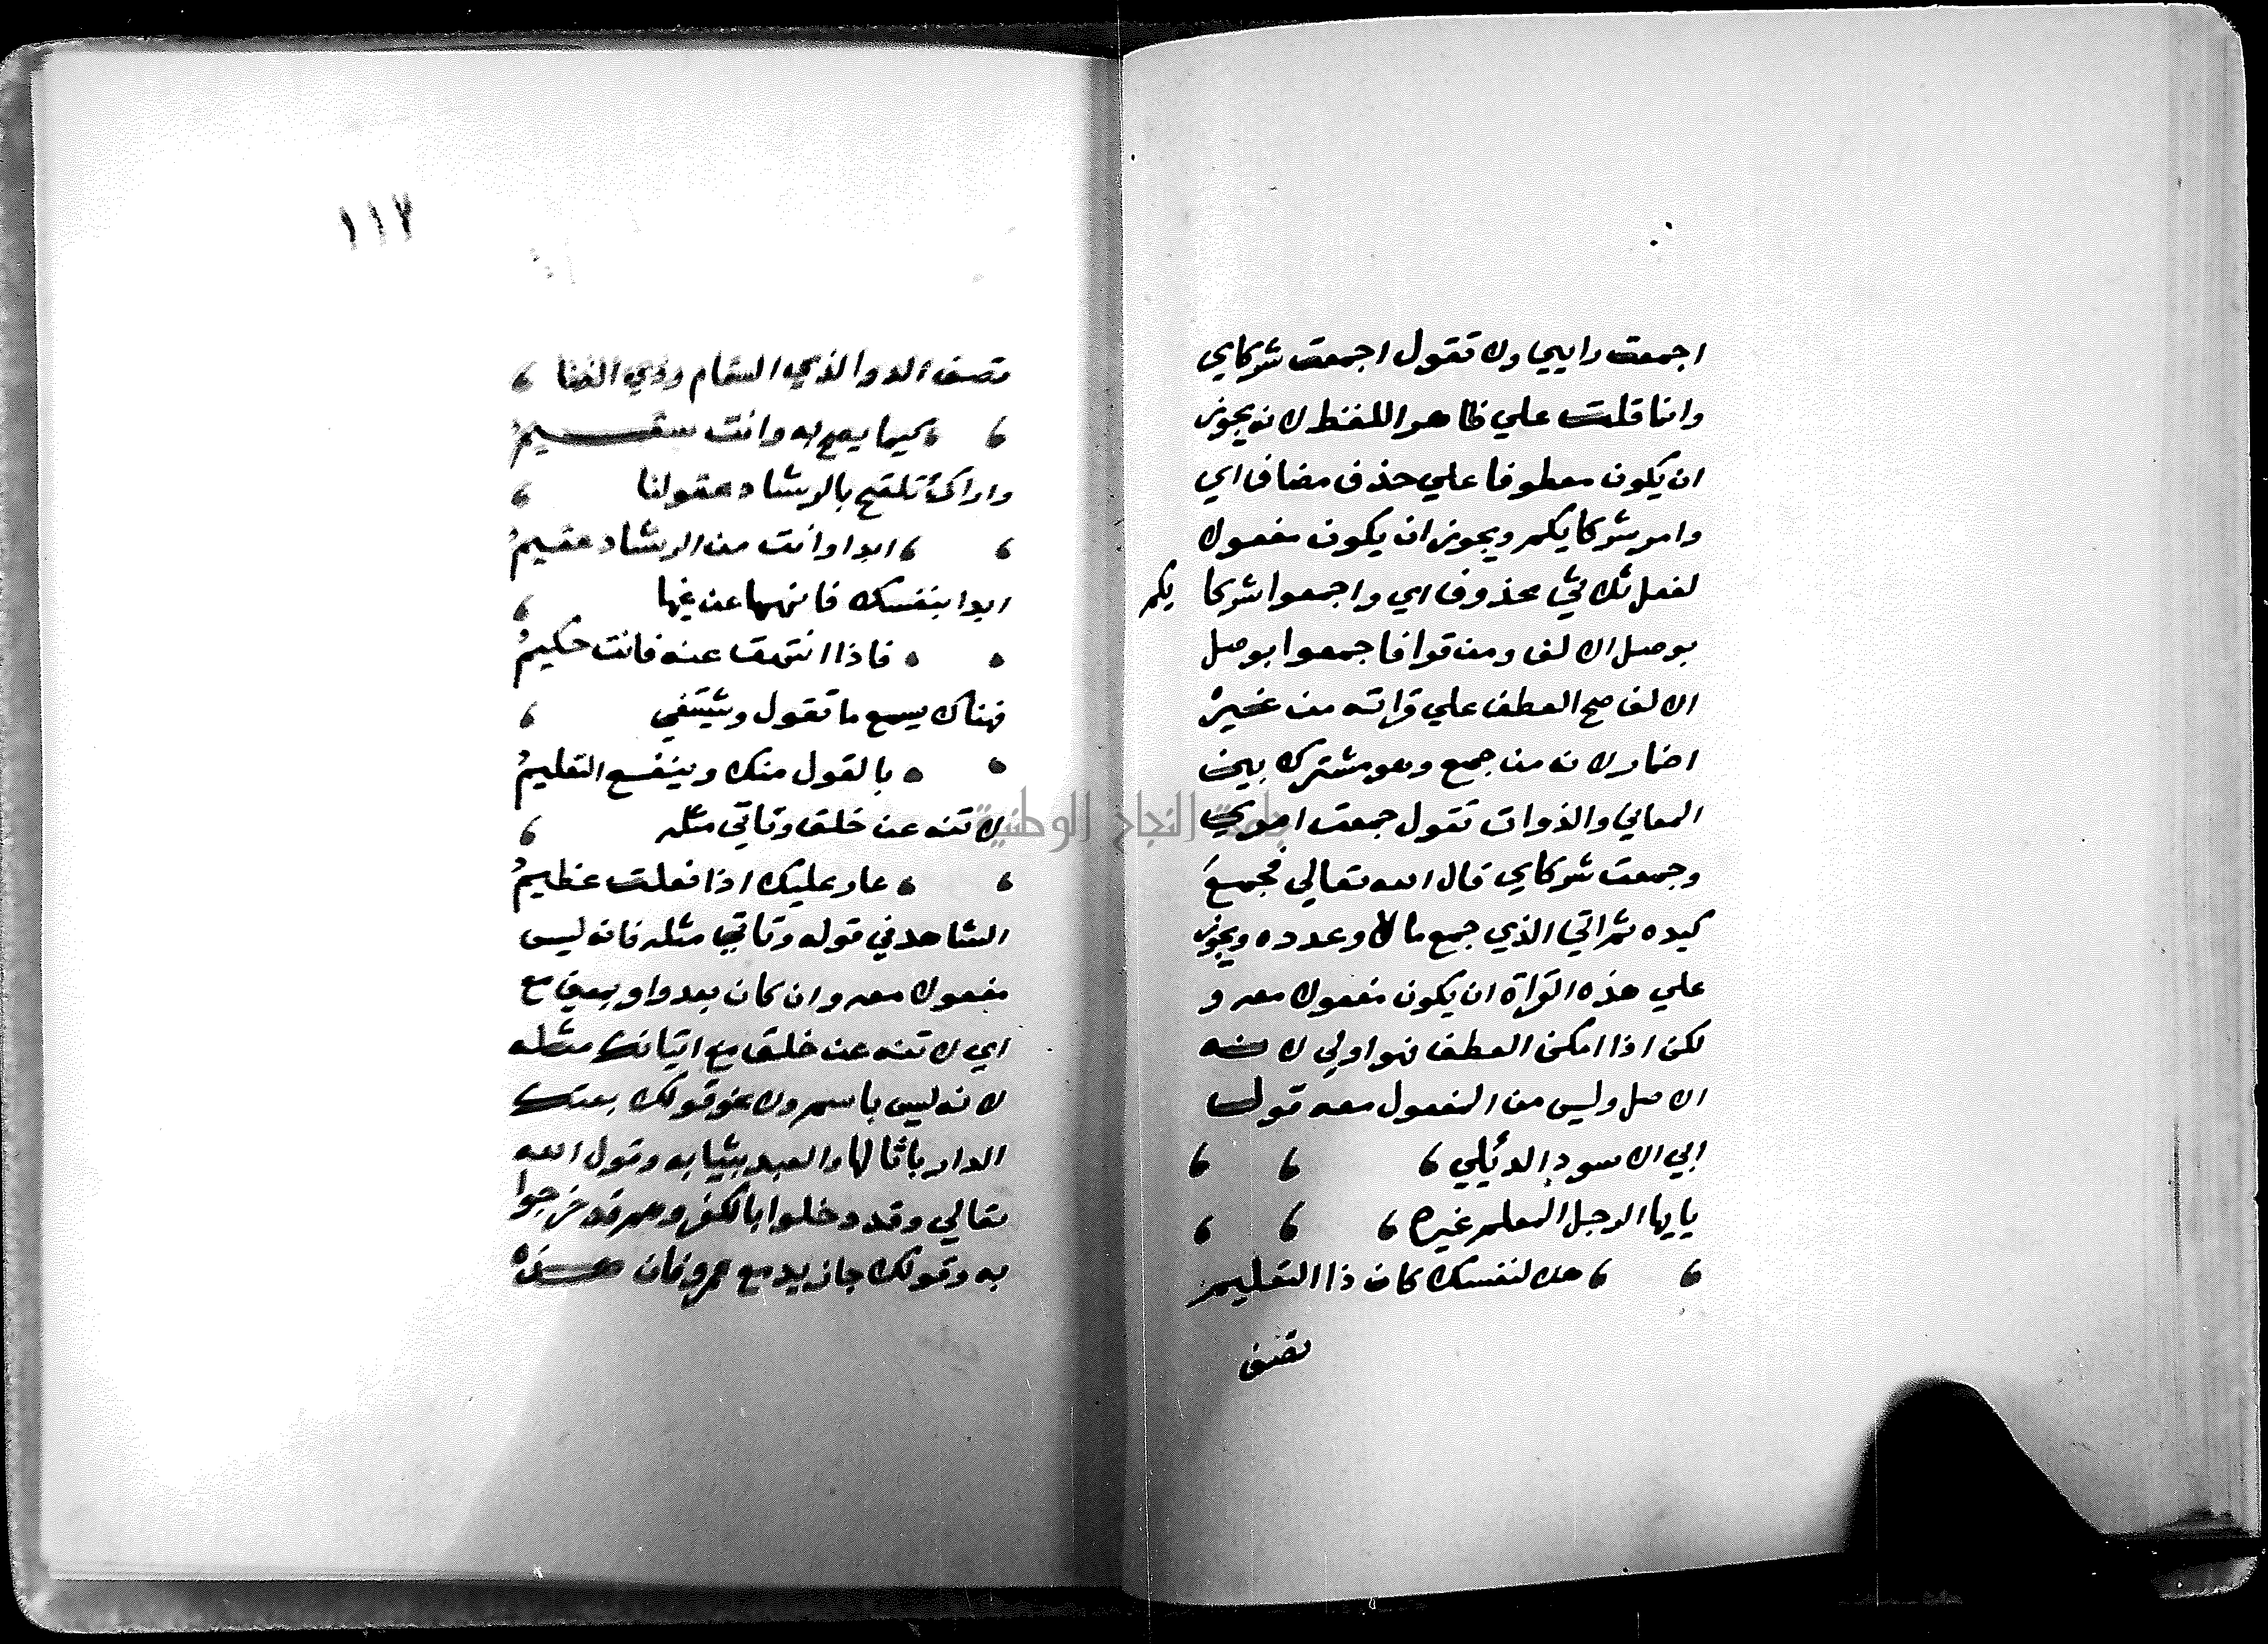 اجمعت رايي ولا تقول اجمعت شركاي
وانما قلت علي ظاهر اللفظ لانه يجوز
ان يكون معطوفا علي حذف مضاف اي
وامر شركايكم ويجوز ان يكون مفعولا
لفعل ثلاثي محذوف اي واجمعوا شركايكم
بوصل الالف ومن قرا فاجمعوا بوصل
الالف صح العطف علي قراته من غير
اضمار لانه من جمع وهو مشترك بين
المعاني والذوات تقول جمعت امري
وجمعت شركاي قال الله تعالي فجمع
كيده ثم اتي الذي جمع مالا وعدده ويجوز
علي هذه القراة ان يكون مفعولا معه و
لكن اذا امكن العطف فهو اولي لانه
الاصل وليس من المفعول معه قول
ابي الاسود الدئلي
يايها الرجل المعلم غيره
هلا لنفسك كان ذا التعليم
تصف
١١٧
تصف الدوا لذي السقام وذي الضنا
كيما يصح به وانت سقيم
واراك تلقح بالرشاد عقولنا
ابدا وانت من الرشاد عقيم
ابدا بنفسك فانهها عن غيها
فاذا انتهت عنه فانت حكيم
فهناك يسمع ما تقول ويشتفي
بالقول منك وينفع التعليم
لا تنه عن خلق وتاتي مثله
عار عليك اذا فعلت عظيم
الشاهد في قوله وتاتي مثله فانه ليس
مفعولا معه وان كان بعد واو بمعني مع
اي لا تنه عن خلق مع اتيانك مثله
لانه ليس باسم ولا نحو قولك بعتك
الدار باثاثها والعبد بثيابه وقول الله
تعالي وقد دخلوا بالكفر وهم قد خرجوا
به وقولك جا زيد مع عمرو فان هذه
جامعة النجاح الوطنية